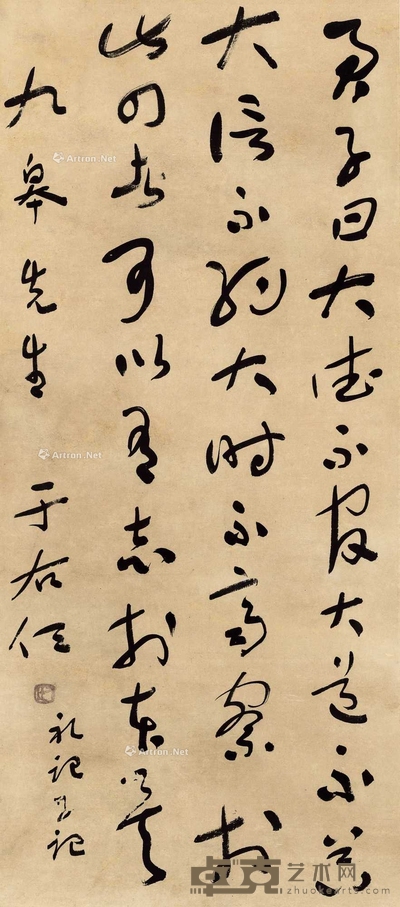 君子曰大德不官大道不器
大信不約大時不齊察於
此四者可以有志於本矣
九皋先生 于右任
礼記學記
Artron.Net
Artron.Net
Artron.Net
卓克艺术网
zhuokearts.com